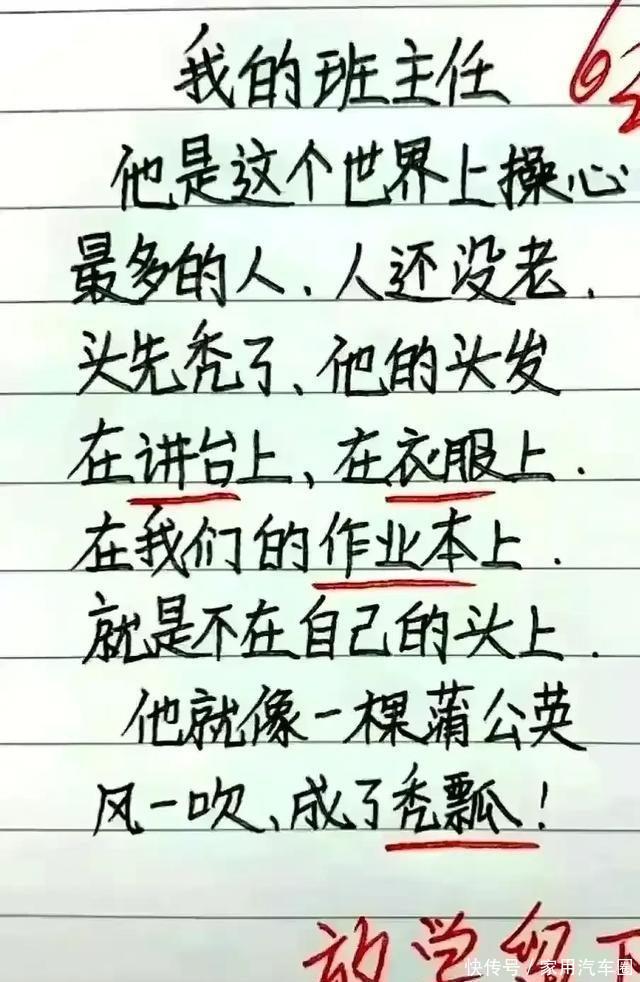 我的班主任
他是这个世界上操心
最多的人、人还没老.
头先秃了、他的头发
在讲台上、在衣服上.
在我们的作业本上.
就是不在自己的头上.
他就像一棵蒲公英
风一吹、成了秃瓢!
放学留下
快传号/家用汽车圈